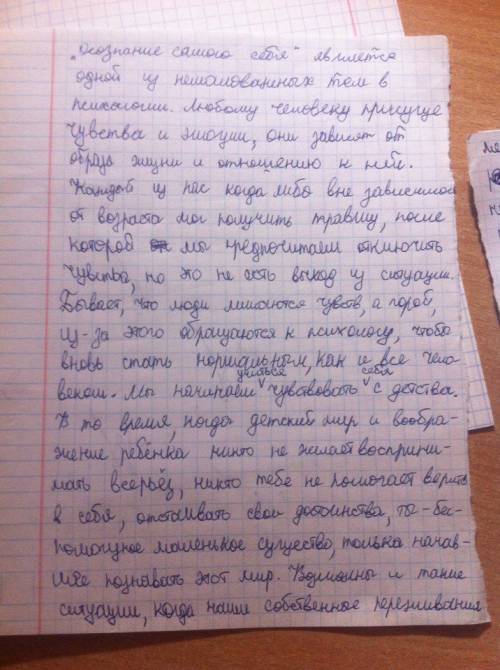 "Осознание самого себя" является
одной из немаловажных тем в
психологии. Любому человеку присуще
чувства и эмоции, они зависят от
образа жизни и отношению к ней.
Каждый из нас когда либо вне зависимос
от возраста мог получить травму, после
которой мы предпочитаем отключить
чувства, но это не есть выход из ситуации.
Бывает, что люди лишаются чувств, а порой,
из-за этого обращаются к психологу, чтобы
вновь стать нормальным, как и все чело-
веком. Мы начинаем учиться чувствовать себя с детства.
В то время, когда детский мир и вообра-
жение ребёнка никто не желает восприни-
мать всерьёз, никто тебе не помогает верить
в себя, отстаивать свои достоинства, ты - бес-
помощное маленькое существо, только начав-
шее познавать этот мир. Возможны и такие
ситуации, когда наши собственное переживания